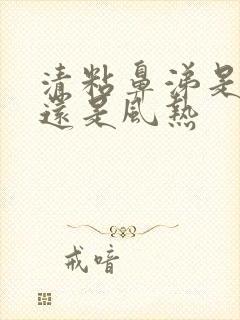 清粘鼻涕是
還是風熱
戒喑